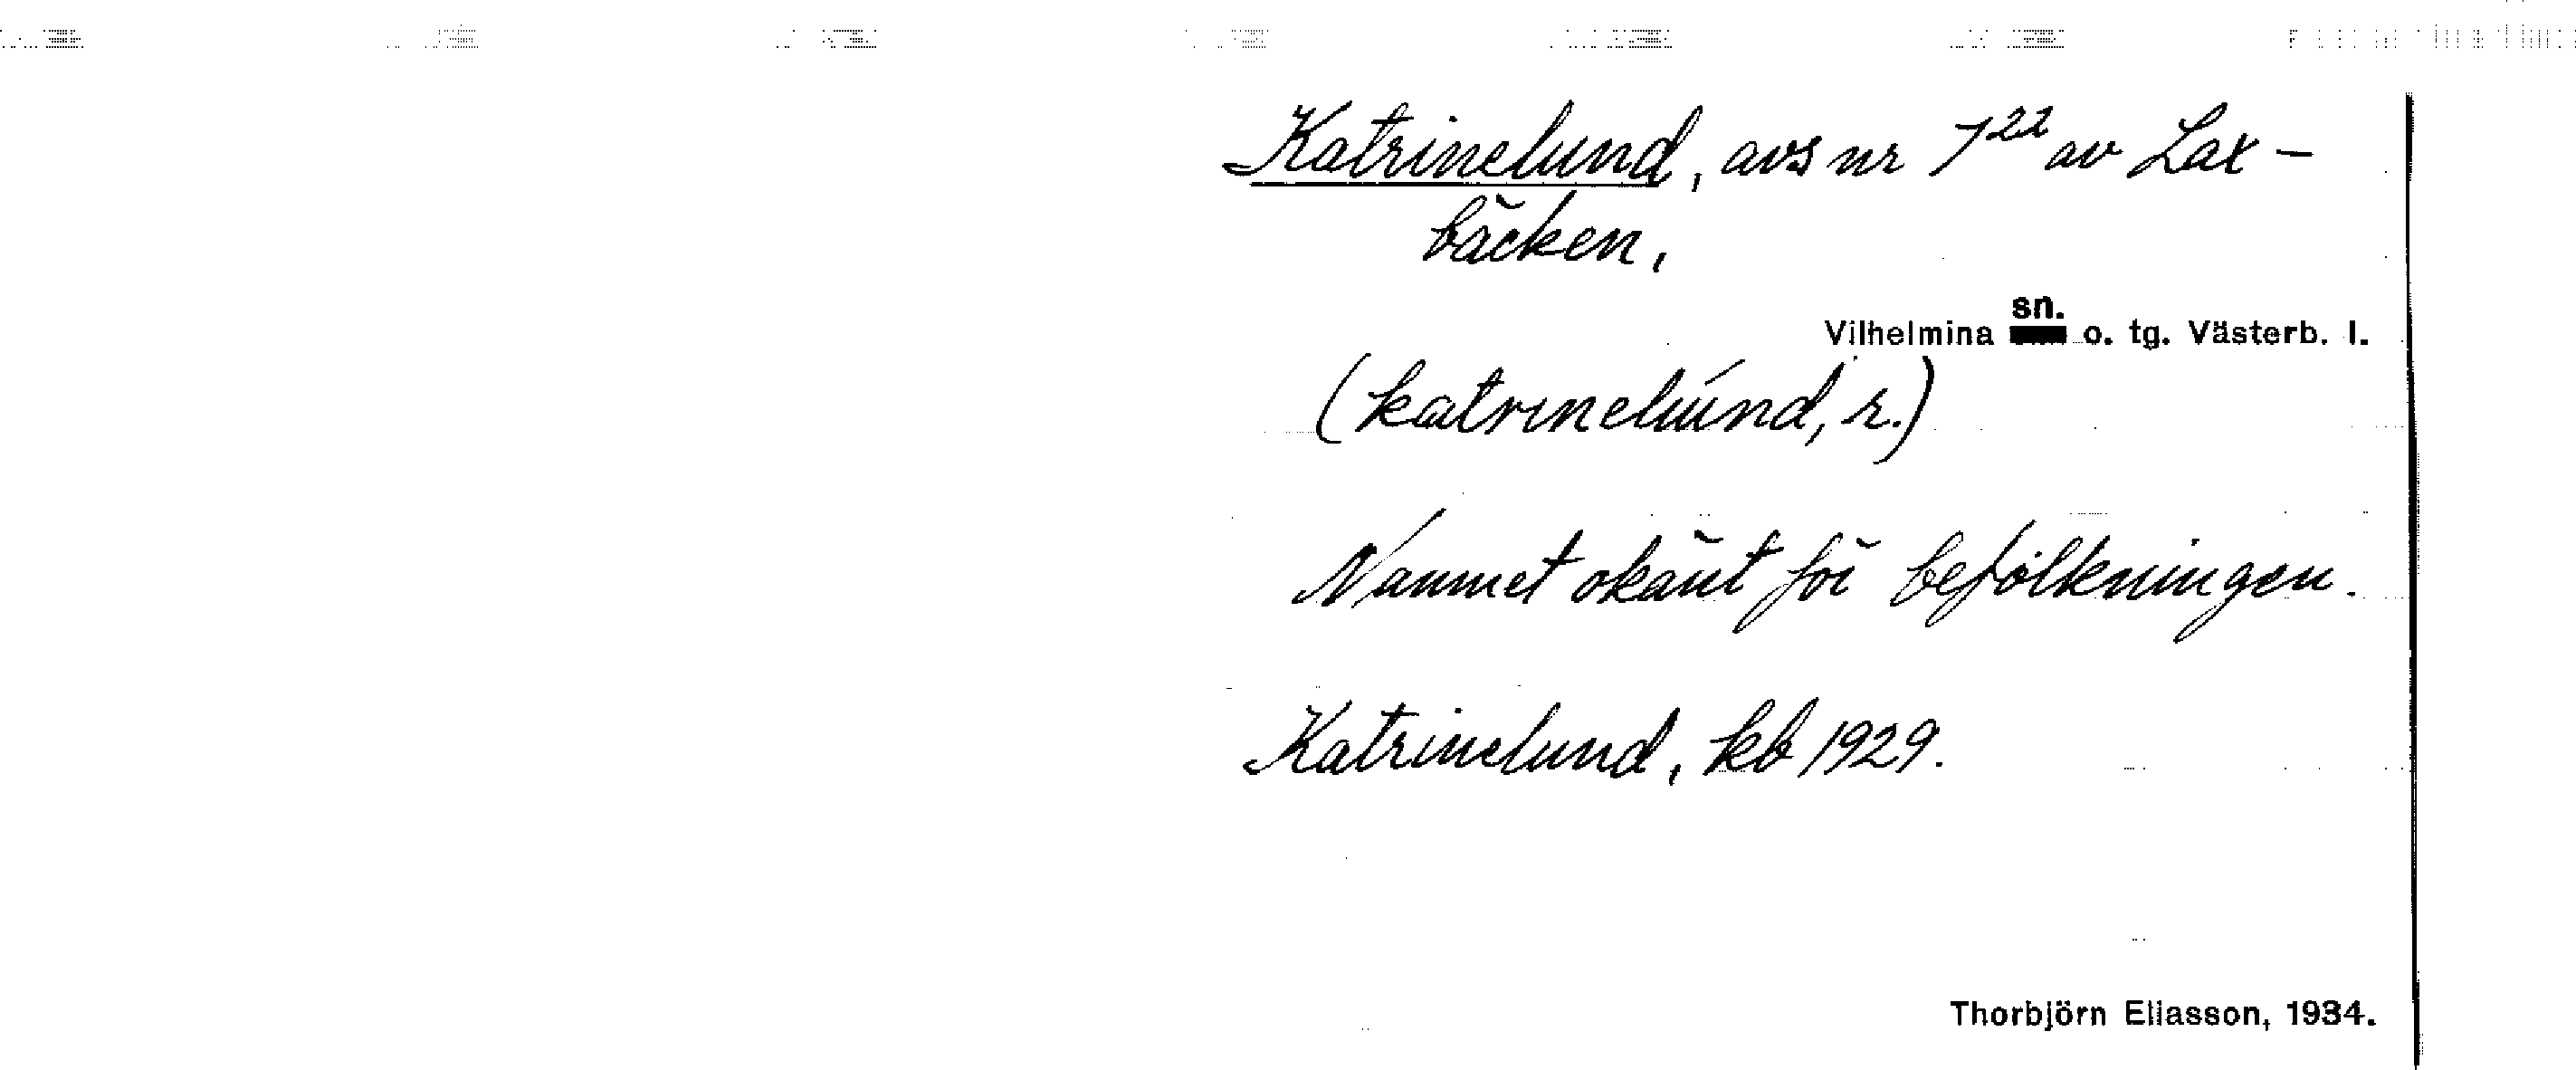 Katrinelund, avs nr 7²² av Lax-
bäcken,
Vilhelmina sn. o. tg. Västerb. l.
(katrinelúnd, r.)
Namnet okänt för befolkningen.
Katrinelund, kb 1929.
Thorbjörn Eliasson, 1934.